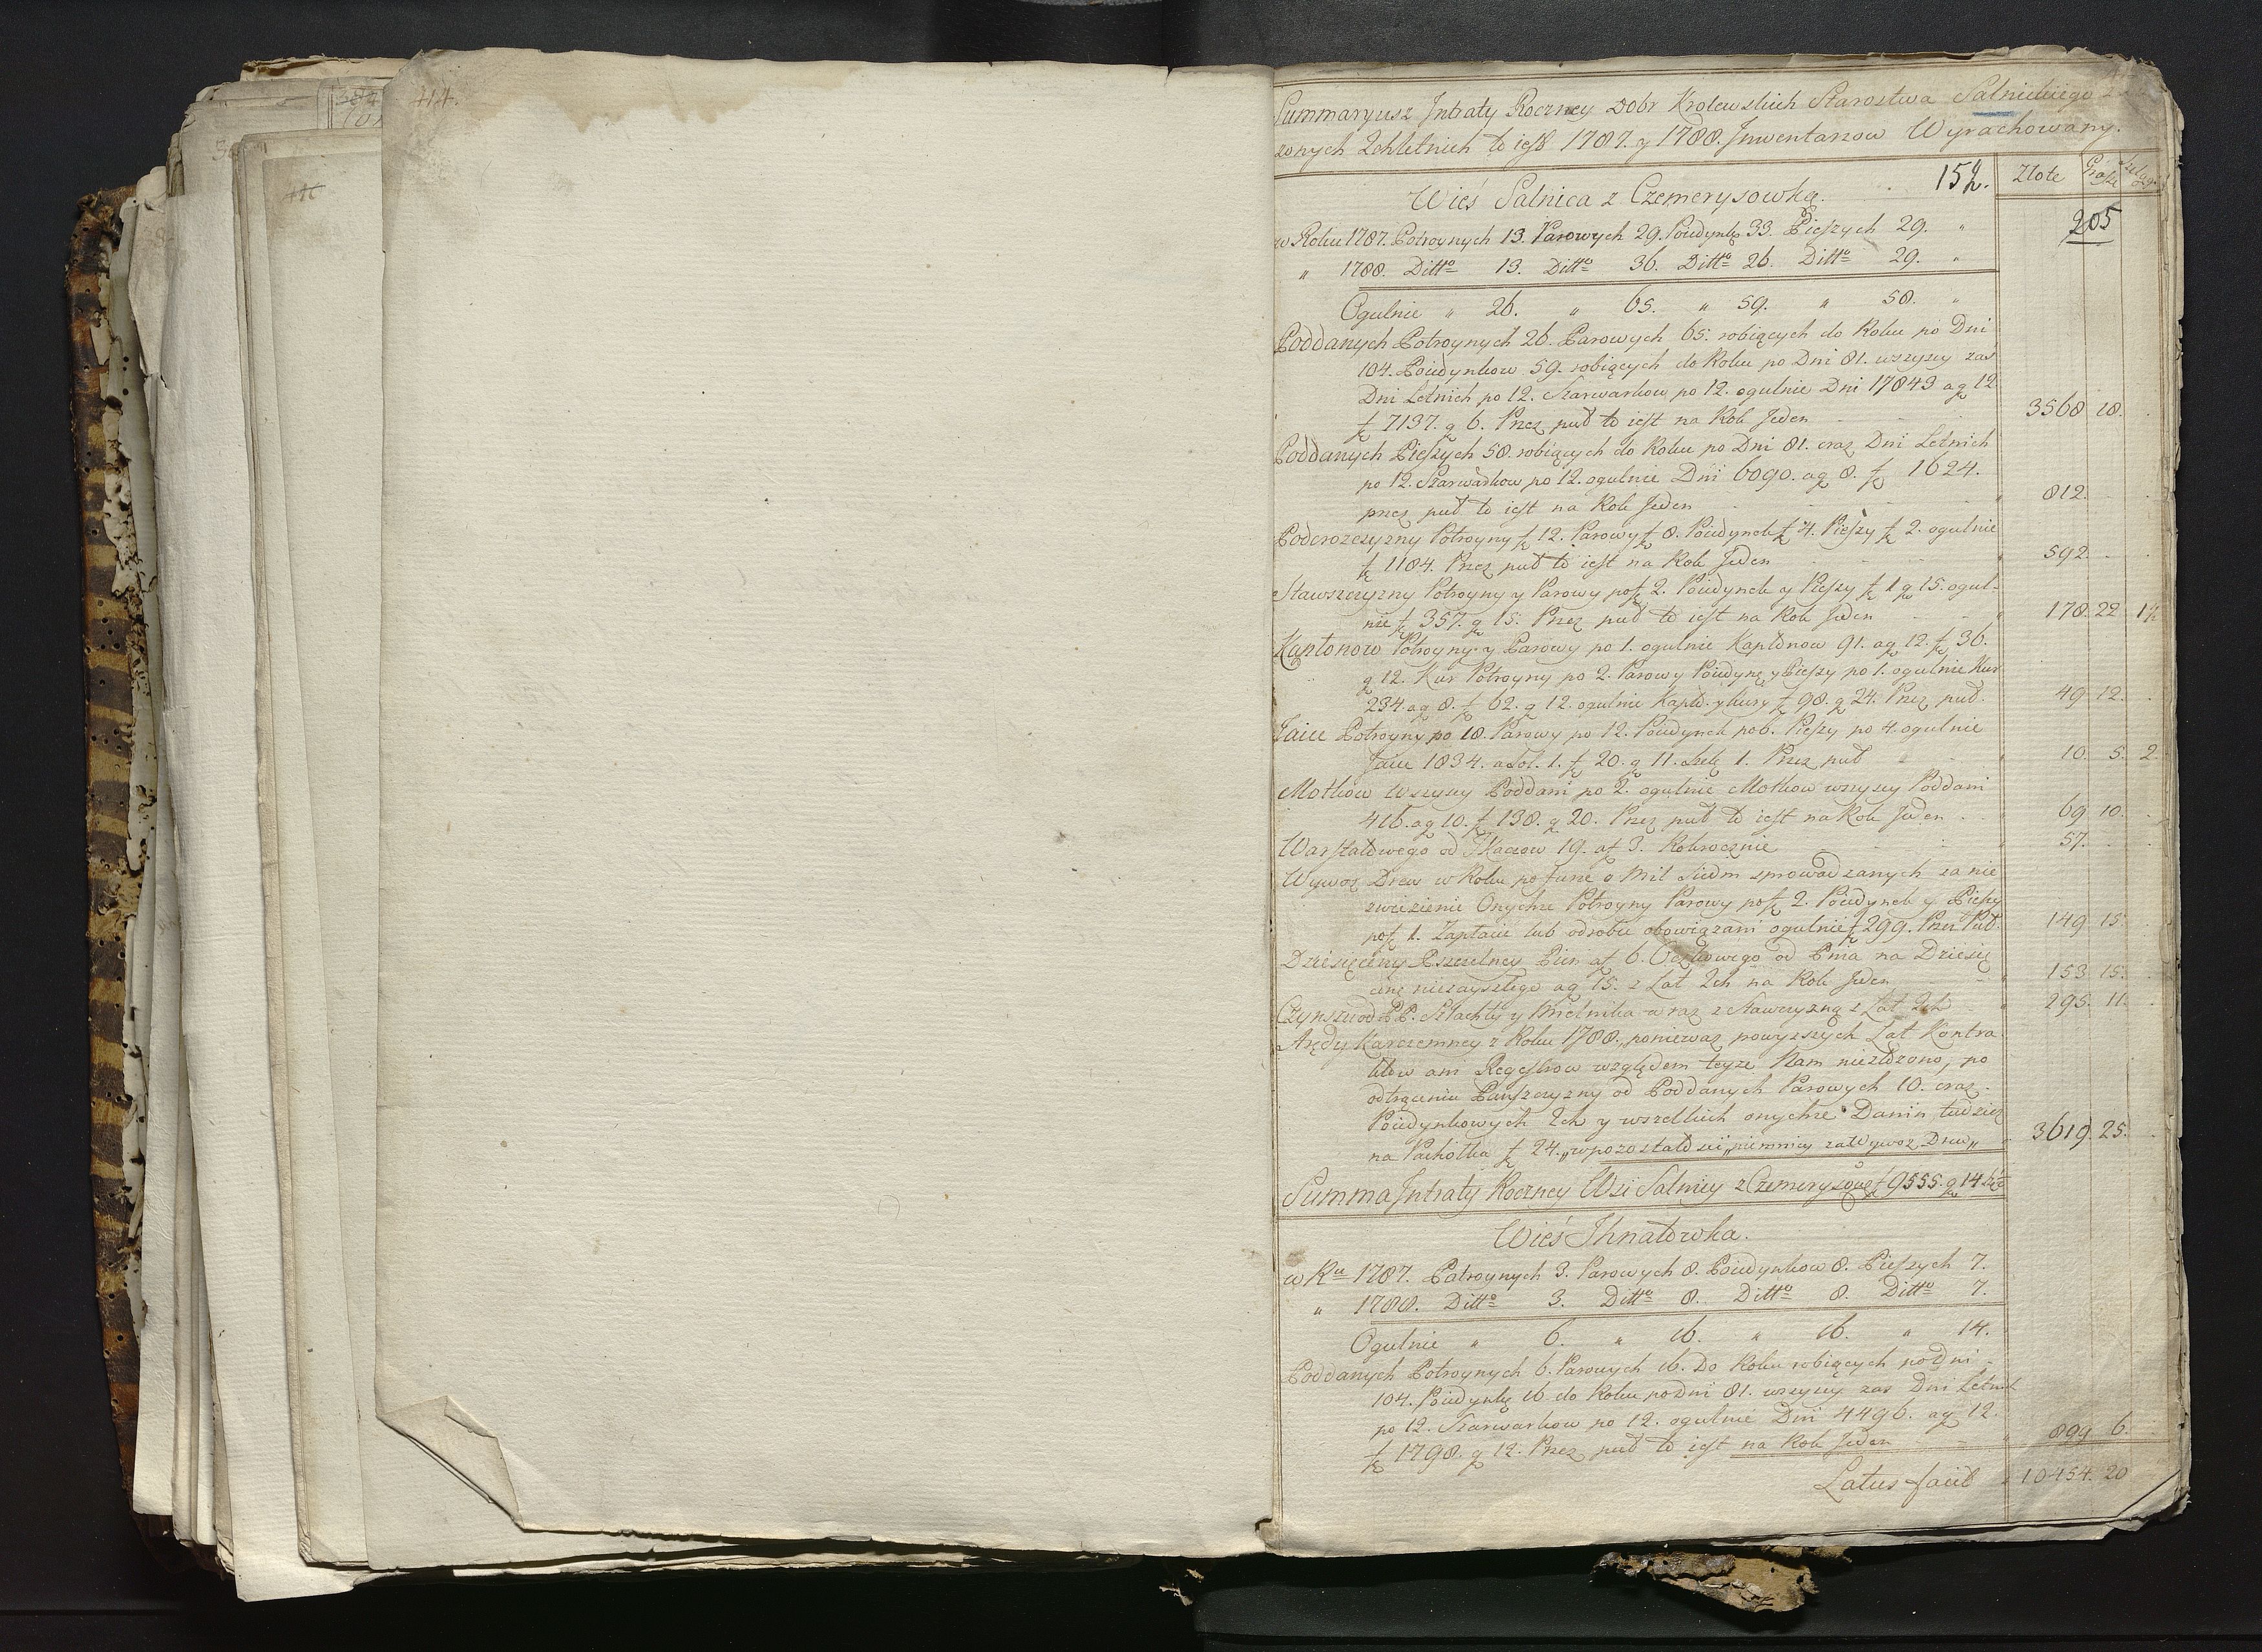 414.
Summaryusz Intraty Roczney Dobr Krolewskich Starostwa Salnickiego
zonych 2chletnich to iest 1787. y 1788. Inwentarzow Wyrachowany.
152. Złote Grosze Szelągi
Wieś Salnica z Czemerysowką.
205
w Roku 1787. Potroynych 13. Parowych 29. Poiedynkę 33. Pieszych 29. "
" 1788. Ditto 13. Ditto 36. Ditto 26. Ditto 29. "
Ogulnie " 26. " 65. " 59. " 58. "
Poddanych Potroynych 26. Parowych 65. robiących do Roku po Dni
104. Poiedynkow 59. robiących do Roku po Dni 81. wszyscy zas
Dni Letnich po 12. Szarwarkow po 12. ogulnie Dni 17843 a g 12
f 7137. g 6. Przez puł to iest na Rok Jeden 3568 18.
Poddanych Pieszych 58. robiących do Roku po Dni 81. oraz Dni Letnich
po 12. Szarwarkow po 12. ogulnie Dni 6090. a g 8. f 1624.
przez puł to iest na Rok Jeden 812.
Podorozczyzny Potroyny f 12. Parowy f 8. Poiedynek f 4. Pieszy f 2. ogulnie
f 1184. Przez puł to iest na Rok Jeden 592.
Stawszczyzny Potroyny y Parowy po f 2. Poiedynek y Pieszy f 1 g 15. ogul-
nie f 357. g 15. Przez puł to iest na Rok Jeden 178. 22 1½
Kapłonow Potroyny y Parowy po 1. ogulnie Kapłonow 91. a g 12. f 36.
g 12. Kur Potroyny po 2. Parowy Poiedynę y Pieszy po 1. ogulnie Kur
234. a g 8. f 62. g 12. ogulnie Kapło. y kury f 98. g 24. Przez puł. 49 12.
Jaiec Potroyny po 18. Parowy po 12. Poiedynek po 6. Pieszy po 4. ogulnie
Jaiec 1834. a Szl. 1. f 20. g 11. Szelę 1. Przez puł 10. 5. 2.
Motkow Wszyscy Poddani po 2. ogulnie Motkow wszyscy Poddani
416. a g 10. f 138. g 20. Przez puł to iest na Rok Jeden 69 10.
Warstatowego od Tkaczow 19. a f 3. Rokrocznie 57.
Wywoz Drew w Roku po Furze o Mil Siedm sprowadzanych za nie
zwiezienie Onychze Potroyny Parowy po f 2. Poiedynek y Pieszy
po f 1. Zapłacic lub odrobic obowiązani ogulnie f 299. Przez Puł. 149 15.
Dziesięciny Pszczelney Pien a f 6. Oczkowego od Pnia na Dziesię
cinę niezayszłego a g 15. z Lat 2ch na Rok Jeden 153 15.
Czynszu od PP. Szlachty y Mielnika oraz z Stawczyzną z Lat 2ch 295. 11.
Arędy Karczemney z Roku 1788., poniewaz powyzszych Lat Kontra-
ktow ani Regestrow względem teyze Nam niezłozono, po
odtrąceniu Panszczyzny od Poddanych Parowych 10. oraz
Poiedynkowych 2ch y wszelkich onychze Danin tudziez
na Pachołka f 24. 3619. 25.
Summa Intraty Roczney Wsi Salnicy z Czemerysową f 9555. g 14
Wieś Ihnatowka.
w Ru 1787. Potroynych 3. Parowych 8. Poiedynkow 8. Pieszych 7.
" 1788. Ditto 3. Ditto 8. Ditto 8. Ditto 7.
Ogulnie " 6. " 16. " 16. " 14.
Poddanych Potroynych 6. Parowych 16. Do Roku robiących po Dni
104. Poiedynkę 16 do Roku po Dni 81. wszyscy zas Dni Letnich
po 12. Szarwarkow po 12. ogulnie Dni 4496. a g 12.
f 1798. g 12. Przez puł to iest na Rok Jeden 899 6.
Latus facit 10454. 20